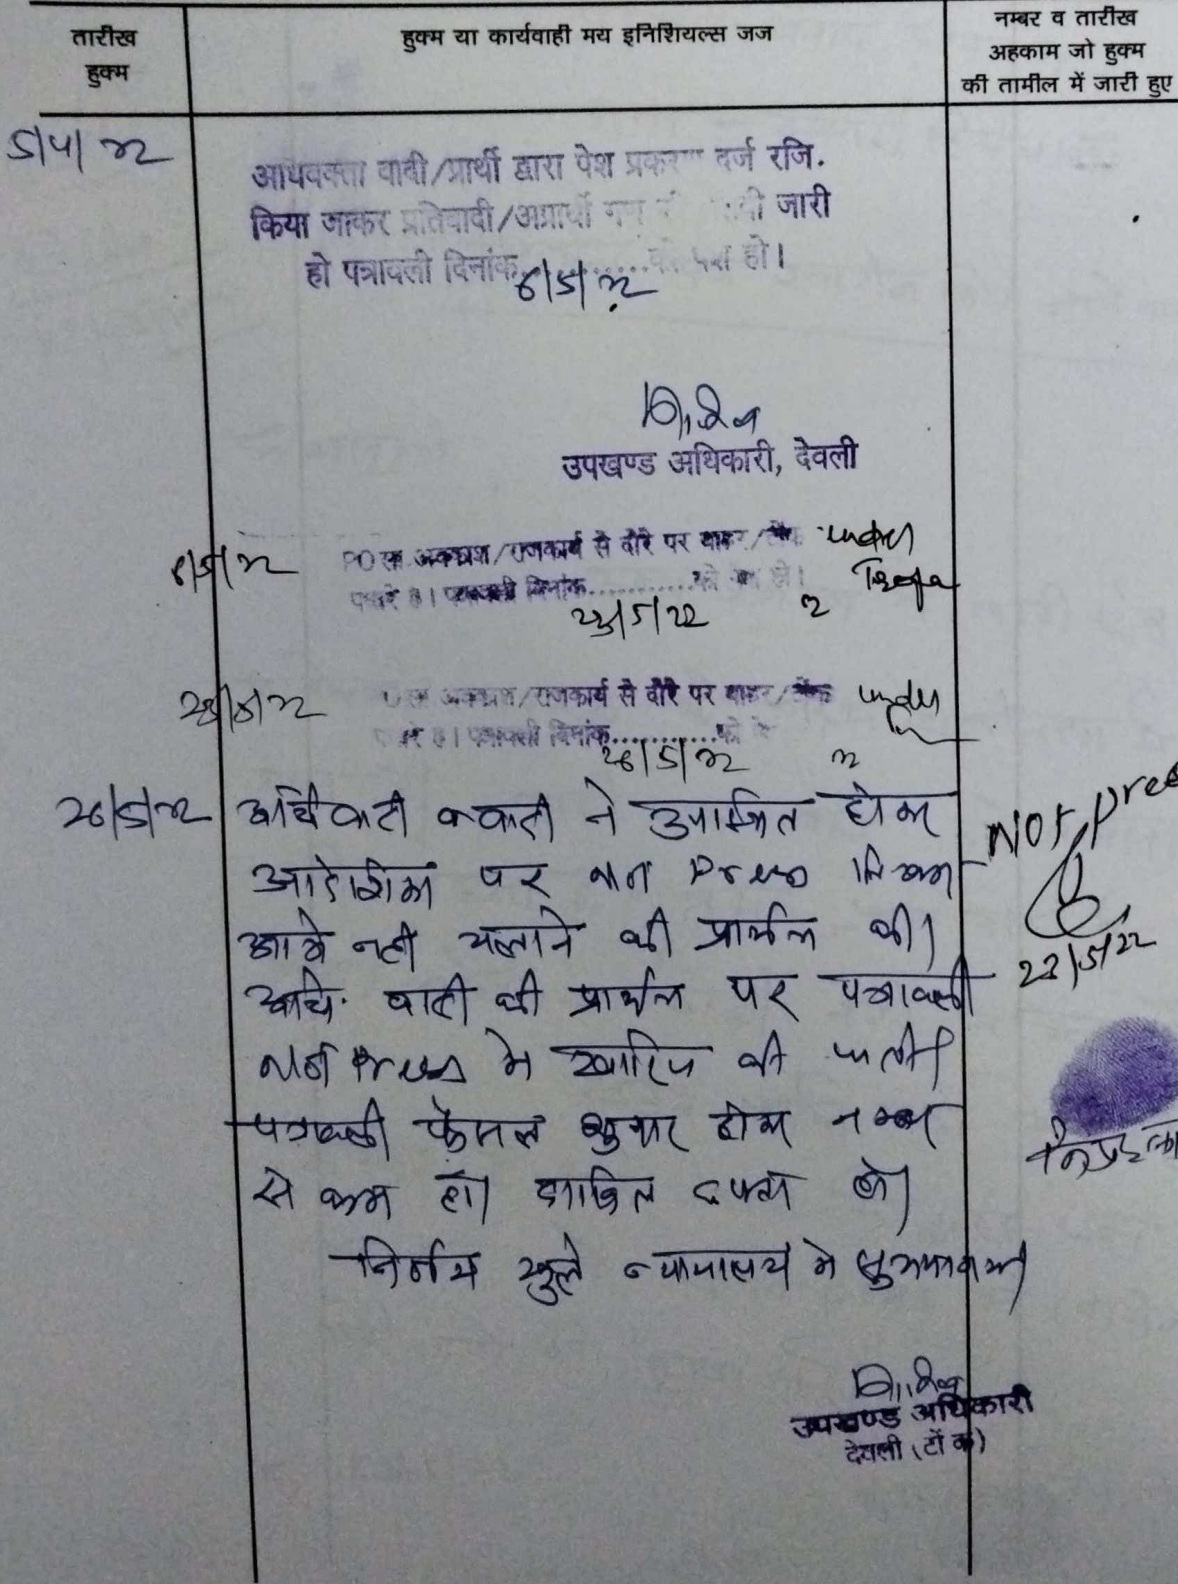 तारीख
हुक्म
हुक्म या कार्यवाही मय इनिशियल्स जज
नम्बर व तारीख
अहकाम जो हुक्म
की तामील में जारी हुए
5/4/22
अधिवक्ता वादी/प्रार्थी द्वारा पेश प्रकरण दर्ज रजि.
किया जाकर प्रतिवादी/अप्रार्थी गण जारी
हो पत्रावली दिनांक 6/5/22 को पेश हो।
उपखण्ड अधिकारी, देवली
6/5/22
अवकाश/राजकार्य से दौरे पर बाहर under
पत्रावली दिनांक............को
23/5/22
अवकाश/राजकार्य से दौरे पर बाहर under
पत्रावली दिनांक............को
26/5/22
26/5/22
वादी ने उपस्थित होकर
Not press
आदेशिका पर नोट Press
आगे नहीं चलाने की प्रार्थना की।
23/5/22
अधि. वादी की प्रार्थना पर पत्रावली
नोट Press मे खारिज की जाती
पत्रावली फैसल शुमार होकर नम्बर
से कम हो। दाखिल दफ्तर हो।
निर्णय खुले न्यायालय मे सुनाया गया।
उपखण्ड अधिकारी
देवली (टोंक)